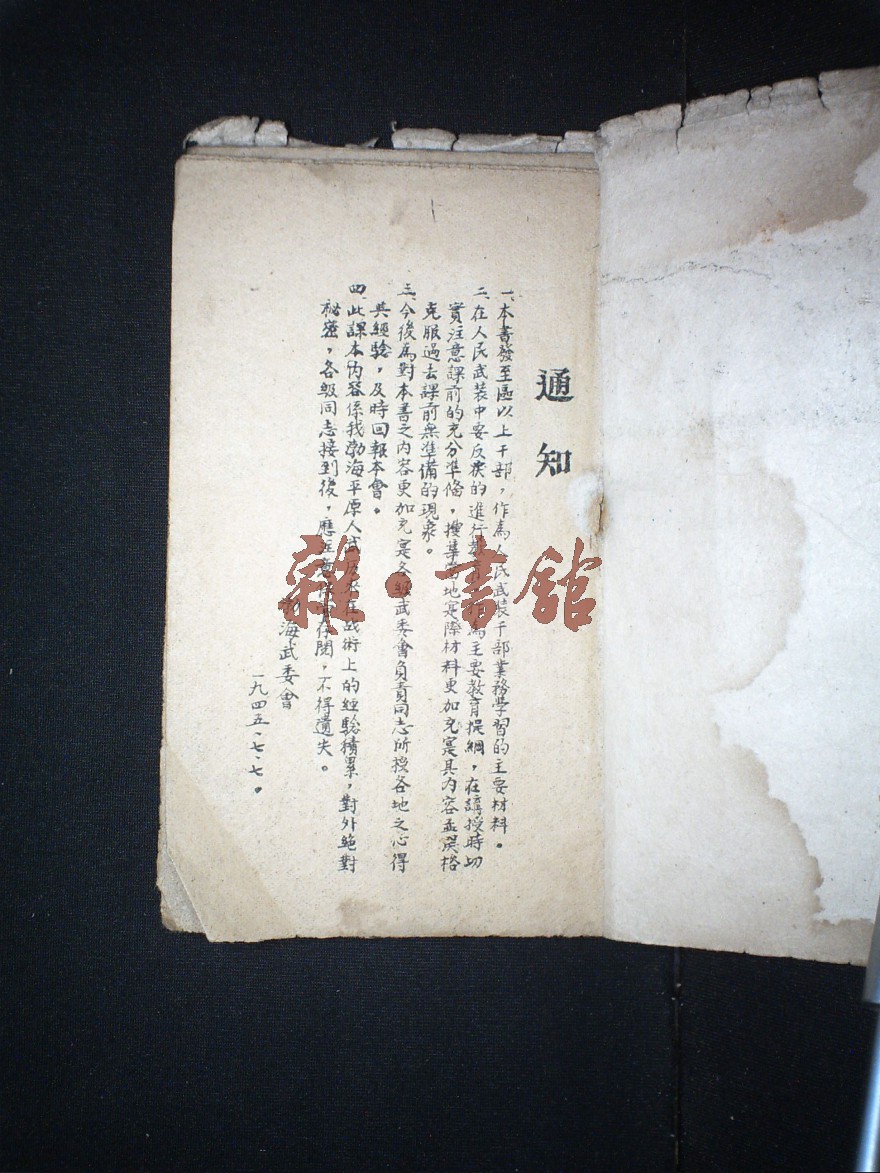 通知
一、本書發至區以上干部，作為人民武装干部業務學習的主要材料。
二、在人民武装中要反復的進行教育，為主要教育提綱，在講授時切
實注意課前的充分準俻，搜集當地寔際材料更加充寔其内容并嚴格
克服過去課前無準備的現象。
三、今後為對本書之内容更加充寔各級武委會負責同志所授各地之心得
與經驗，及時回報本會。
四、此課本内容係我渤海平原人战術上的經驗積累，對外絶對
秘密，各級同志接到後，應注意存閱，不得遺失。
渤海武委會
一九四五、七、七。
雜·書館